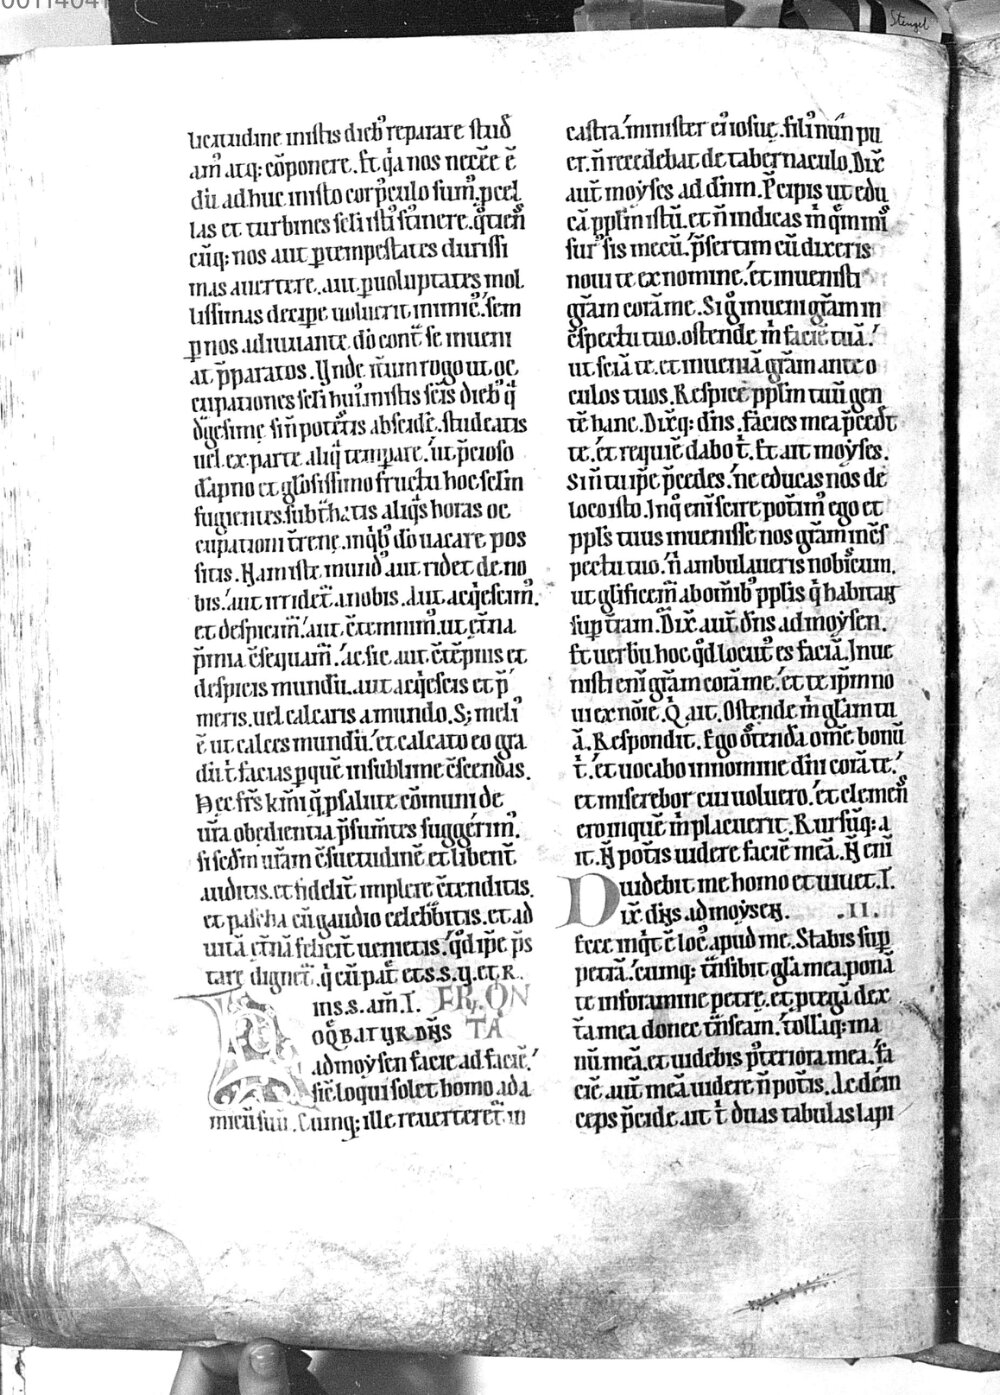 ueitudine in istis dieb᷒ reparare stud
am᷒ atq: cōponere. Et q̇a nos necēē ē
dū adhuc in isto corp̄culo sum᷒. p̄cel
las et turbines sc̄li isti᷒ sustinere. q̇tien̄
cūq: nos aut ꝑ tempestates durissi
mas auertere. aut ꝑ uoluptates mol
lissimas decipe uoluerit inimic᷒. sem
ꝑ nos adiuuante dō cont᷒ se inueni
at p̄paratos. Vnde it̄um rogo ut oc
cupationes sc̄li hui᷒. in istis sc̄is dieb᷒ q̄
dr̄gesimę si n̄ potestis abscidē. studeatis
uel ex parte aliq̄ temperare. ut p̄cioso
dāpno et gl̄osissimo fructu hoc sc̄lm
fugientes. subt̄hatis aliq̇s horas oc
cupationi t̄renę. in q̇b᷒ dō uacare pos
sitis. Nam iste mund᷒ aut ridet de no
bis. aut irridet᷒ a nobis. Aut acq̇escim᷒.
et despicim᷒. aut c̄tēnim᷒. ut ęt̄na
p̄mia c̄sequam᷒. Ac sic aut c̄tēpnis et
despicis mundū. aut acq̇escis et p̄
meris. uel calcaris a mundo. S; meli᷒
ē ut calces mundū. et calcato eo gra
dū t᷒ facias ꝑ quē in sublime c̄scendas.
Hec fr̄s k̄mi q̄ ꝓ salute cōmuni de
ur̄a obędientia p̄sumētes suggerim᷒.
si scd̄m ur̄am c̄suetudinē et libent᷒
auditis. et fidelit᷒ implere c̄tenditis.
et pascha cū gaudio celebrabitis. et ad
uitā ęt̄nā felicit᷒ uenietis. q̇d ipe p̄s
tare dignet᷒. q̇ cū pat᷒ et s. s. u. et R.
in s. s. am̄. I. FR. QN
LOQVEBATVR DN̄S TA
ad moẏsen facie ad faciē.
sic̄ loqui solet homo ad a
micū suū. Cumq: ille reuerteret᷒ in
castra. minister ei᷒ iosuę. fili᷒ nūn pu
er. n̄ recedebat de tabernaculo. Dix̄
aut̄ moẏses ad dn̄m. P̄cipis ut edu
cā ppl̄m istū. et n̄ indicas m̄ quē mis
sur᷒ sis mecū. p̄sertim cū dixeris
noui te ex nomine. et inuenisti
gr̄am corā me. Si g᷒ inueni gr̄am in
c̄spectu tuo. ostende m̄ faciē tuā.
ut sciā te. et inueniā gr̄am ante o
culos tuos. Respice ppl̄m tuū gen
tē hanc. Dix̄q: dn̄s. facies mea p̄cedet
te. et requiē dabo t᷒. Et ait moẏses.
Si n̄ tu ipe p̄cedes. ne educas nos de
loco isto. In q᷒ eni scire poterim᷒ ego et
ppl̄s tuus inuenisse nos gr̄am in c̄s
pectu tuo. n̄ ambulaueris nobiscum.
ut gl̄ificem᷒ ab om̄ib᷒ ppl̄is q̇ habitant
sup t̄ram. Dix̄ aut̄ dn̄s ad moẏsen.
Et uerbū hoc q̇d locut᷒ es faciā. Inue
nisti eni gr̄am corā me. et te ip̄m no
ui ex nōīe. Q̇ ait. Ostende m̄ gl̄am tu
ā. Respondit. Ego ostendā om̄e bonū
t᷒. et uocabo in nomine dn̄i corā te.
et miserebor cui uoluero. et clemens
ero in quē m̄ placuerit. Rursūq: a
it. N̄ potis uidere faciē meā. N̄ eni
uidebit me homo et uiuet. I.
Dix̄. dn̄s ad moẏsen. .II.
Ecce inq̇t ē loc᷒ apud me. Stabis sup
petrā. cumq: t̄nsibit gl̄a mea. ponā
te in foramine petrę. et ꝓtegā dex
t̄ra mea donec t̄nseam. tollāq: ma
nū meā. et uidebis posteriora mea. fa
ciē aut̄ meā uidere n̄ potis. Ac dein
ceps p̄cide ait t᷒ duas tabulas lapi
Stengel